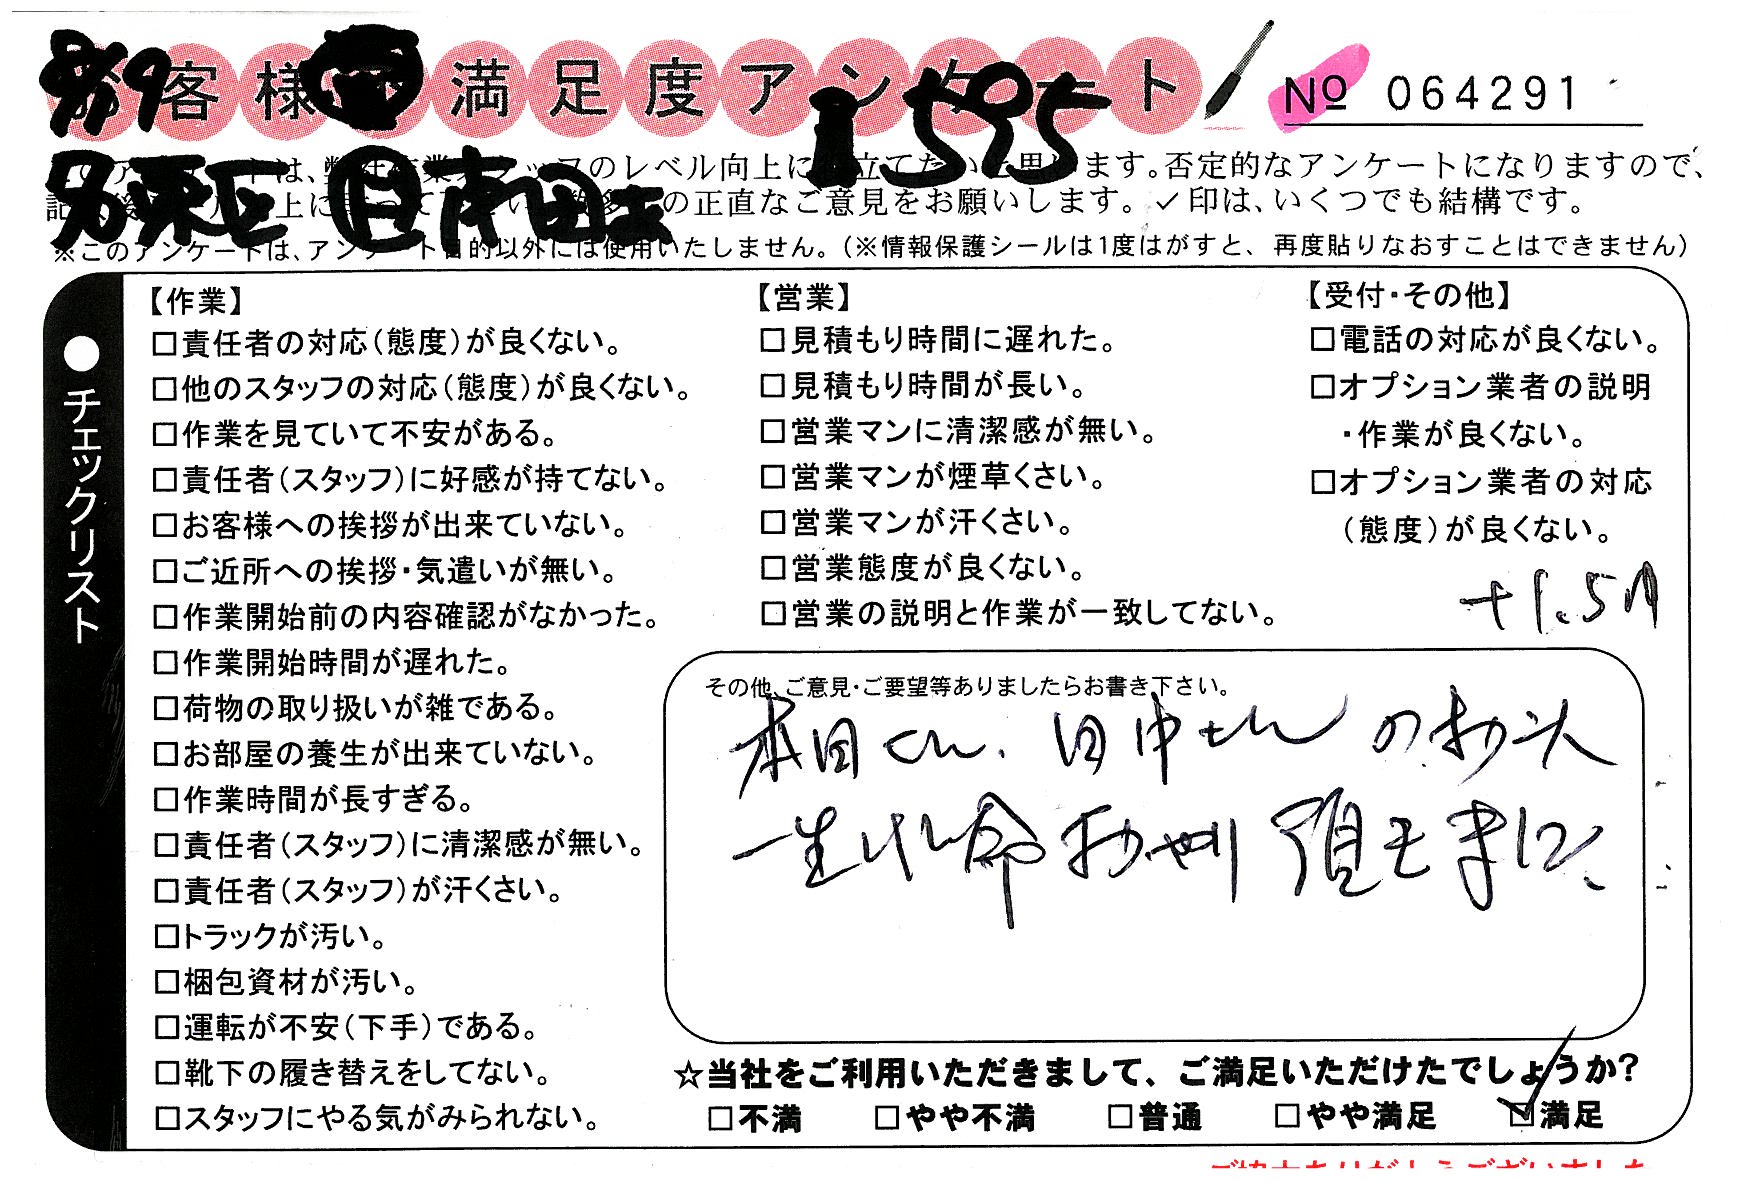 お客様 満足度アンケート
№ 064291
8/19
1595
のレベル向上に役立てたいと思います。否定的なアンケートになりますので、
の正直なご意見をお願いします。✓印は、いくつでも結構です。
※このアンケートは、アンケート目的以外には使用いたしません。(※情報保護シールは1度はがすと、再度貼りなおすことはできません)
●チェックリスト
【作業】
□責任者の対応(態度)が良くない。
□他のスタッフの対応(態度)が良くない。
□作業を見ていて不安がある。
□責任者(スタッフ)に好感が持てない。
□お客様への挨拶が出来ていない。
□ご近所への挨拶・気遣いが無い。
□作業開始前の内容確認がなかった。
□作業開始時間が遅れた。
□荷物の取り扱いが雑である。
□お部屋の養生が出来ていない。
□作業時間が長すぎる。
□責任者(スタッフ)に清潔感が無い。
□責任者(スタッフ)が汗くさい。
□トラックが汚い。
□梱包資材が汚い。
□運転が不安(下手)である。
□靴下の履き替えをしてない。
□スタッフにやる気がみられない。
【営業】
□見積もり時間に遅れた。
□見積もり時間が長い。
□営業マンに清潔感が無い。
□営業マンが煙草くさい。
□営業マンが汗くさい。
□営業態度が良くない。
□営業の説明と作業が一致してない。
【受付・その他】
□電話の対応が良くない。
□オプション業者の説明
・作業が良くない。
□オプション業者の対応
(態度)が良くない。
+1.5
その他、ご意見・ご要望等ありましたらお書き下さい。
本田くん、田中さんのお二人
一生けん命おやり頂きました、
☆当社をご利用いただきまして、ご満足いただけたでしょうか?
□不満 □やや不満 □普通 □やや満足 ☑満足
ご協力ありがとうございました